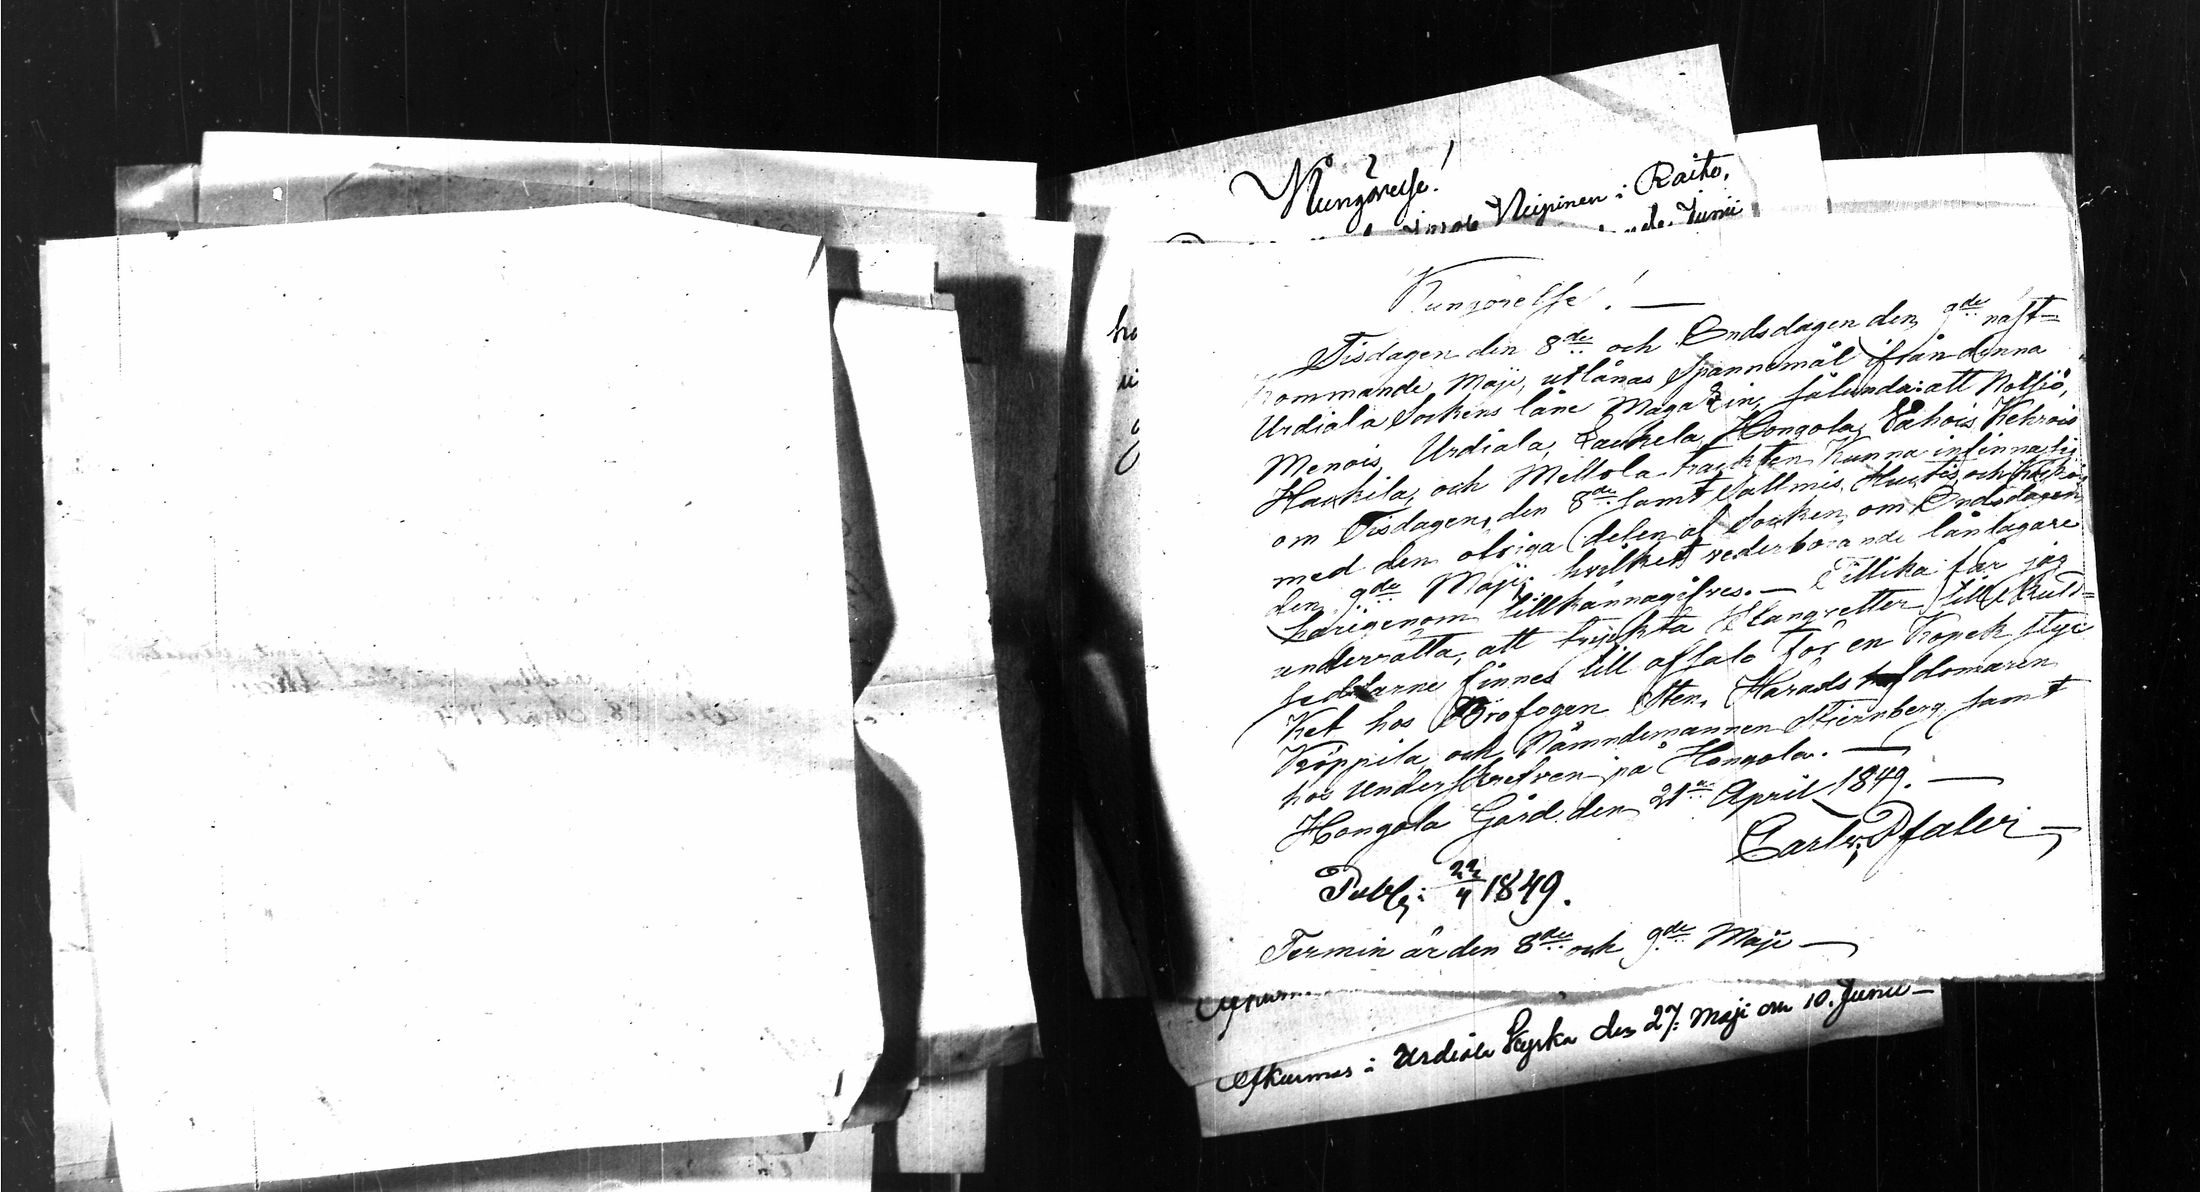 Kungörelse!
Neipinen i Raito,
Junii
Kungörelse! —
Tisdagen den 8de och Ondsdagen den 9de näst=
kommande Maji, utlånas Spannemål ifrån denna
Urdiala Sockens låne Magazin, sålunda: att Notsjö,
Menois, Urdiala, Laukela, Hongola, Wahois, Kehrois
Haukila, och Mellola trackten kunna infinna sig
om Tisdagen, den 8de samt Salmis, Huctis och
med den öfriga delen af Socken, om Ondsdagen
den 9de Maji; hvilket vederbörande låntagare
härigenom tillkännagifves. — Tillika får jag
underrätta, att tryckta Blanqvetter till Skuld=
sedlarne finnes till afsalu för en Kopek styc
ket hos Profogen Sten, Härads domaren
Kröppilä, och Nämndemannen Stiernberg, samt
hos Underskrefven på Hongola. —
Hongola Gård den 21a April 1849. —
Carl v. Pfaler
Publ: 22/4 1849.
Termin är den 8de och 9de Maji —
Afkunnas i Urdiala Kyrka den 27. Maji om 10. Junii —